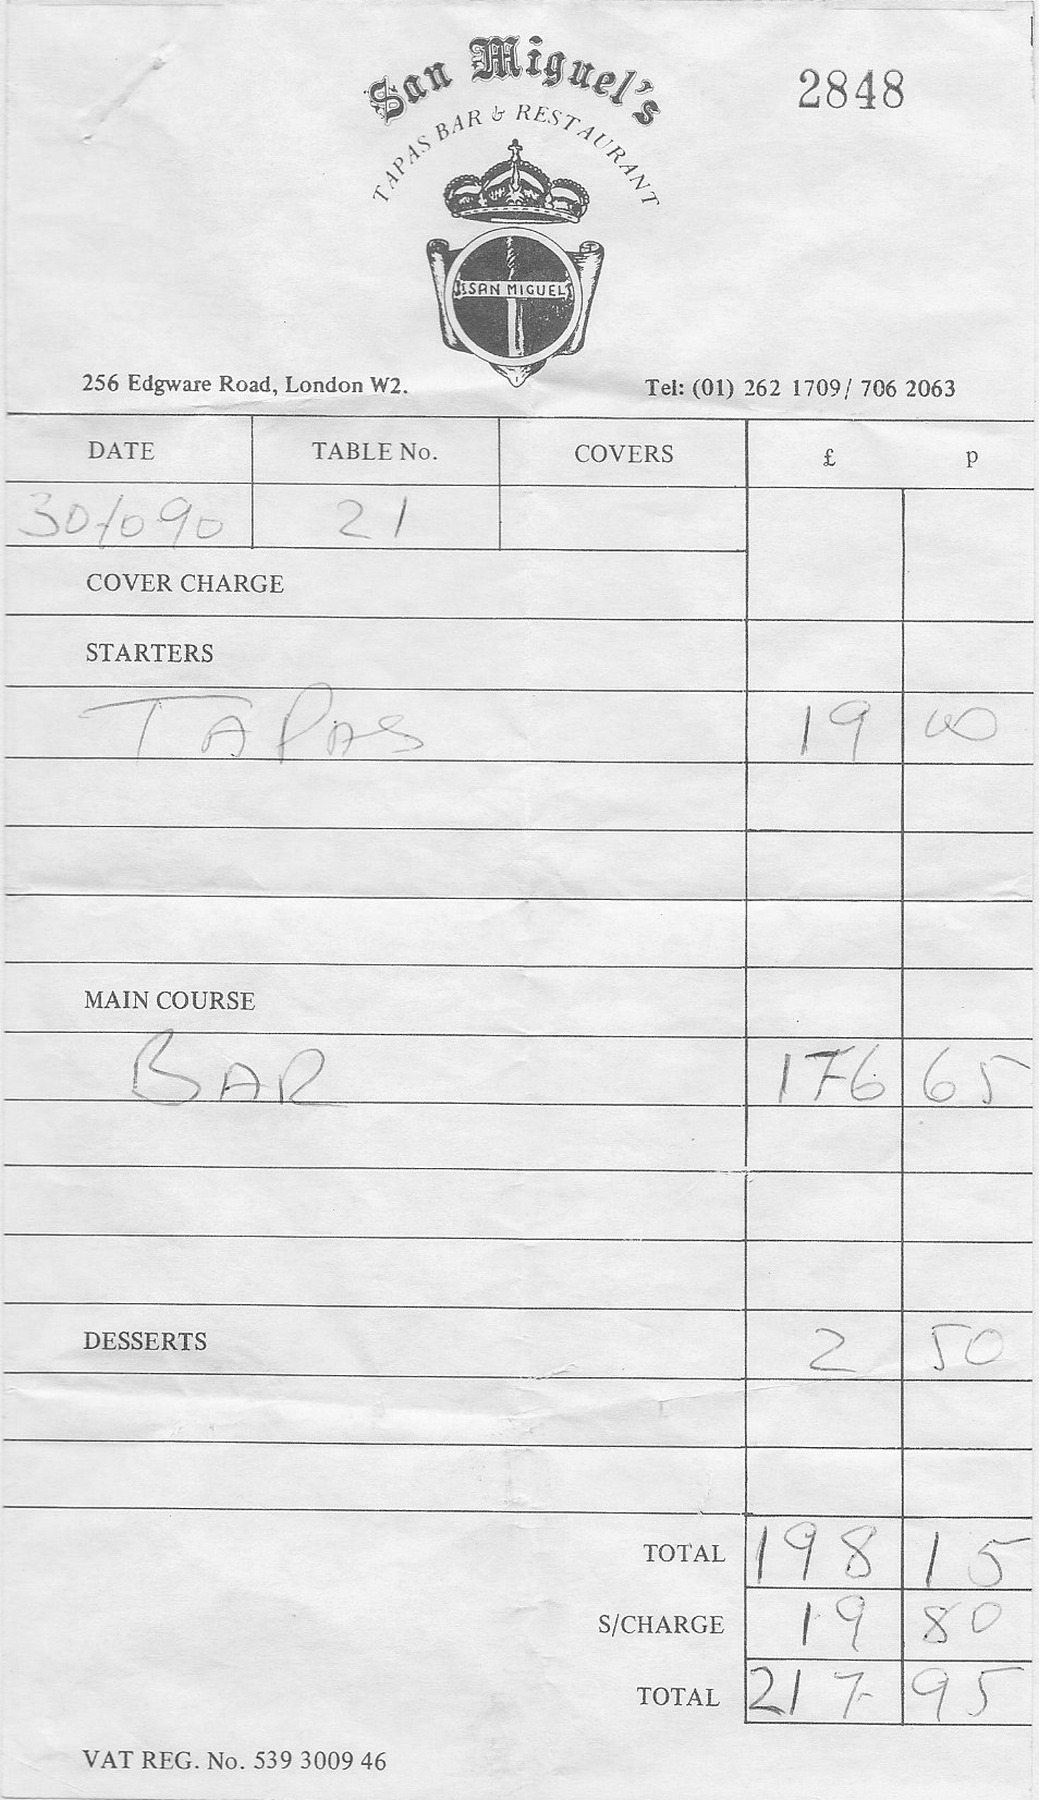 San Miguel's
2848
TAPAS BAR & RESTAURANT
SAN MIGUEL
256 Edgware Road, London W2. Tel: (01) 262 1709/ 706 2063
DATE TABLE No. COVERS £ p
30/10 90 21
COVER CHARGE
STARTERS
TAPAS 19 00
MAIN COURSE
BAR 176 65
DESSERTS 2 50
TOTAL 198 15
S/CHARGE 19 80
TOTAL 217 95
VAT REG. No. 539 3009 46